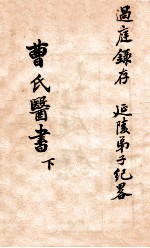 過庭錄存　延陵弟子紀畧
曹氏醫書
下